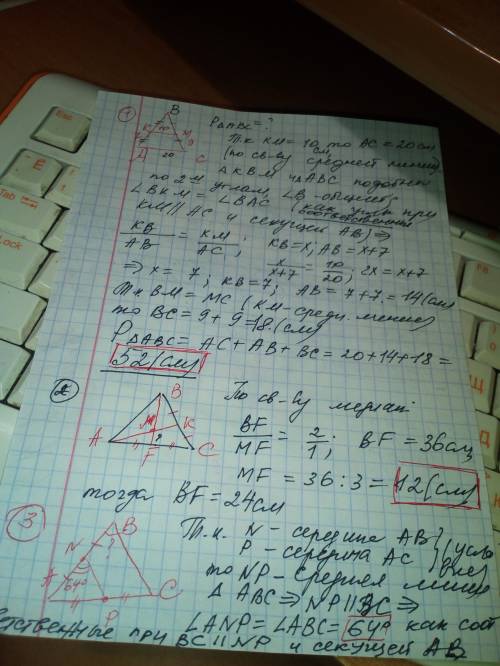 ① B
K 10 M
7 9
A 20 C
P△ABC = ?
Т.к KM = 10 см, то AC = 20 см
(по св-ву средней линии)
△KBM и △ABC подобны
по 2м углам, ∠B общий,
∠BKM = ∠BAC как углы при
соответственные
KM || AC и секущей AB) ⇒
KB/AB = KM/AC; KB = x, AB = x+7
x/x+7 = 10/20; 2x = x+7
⇒ x = 7; KB = 7; AB = 7+7 = 14 (см)
Т.к BM = MC (KM - средн. линия)
то BC = 9 + 9 = 18 (см)
P△ABC = AC + AB + BC = 20 + 14 + 18 =
52 (см)
② B
M K
A F C
По св-ву медиан
BF/MF = 2/1; BF = 36 см
MF = 36 : 3 = 12 (см)
тогда BF = 24 см
③ B
N ?
A 64° P C
Т.к. N - середина AB
P - середина AC
то NP - средняя линия
△ABC ⇒ NP || BC ⇒
∠ANP = ∠ABC = 64° как соот
ветственные при BC || NP и секущей AB